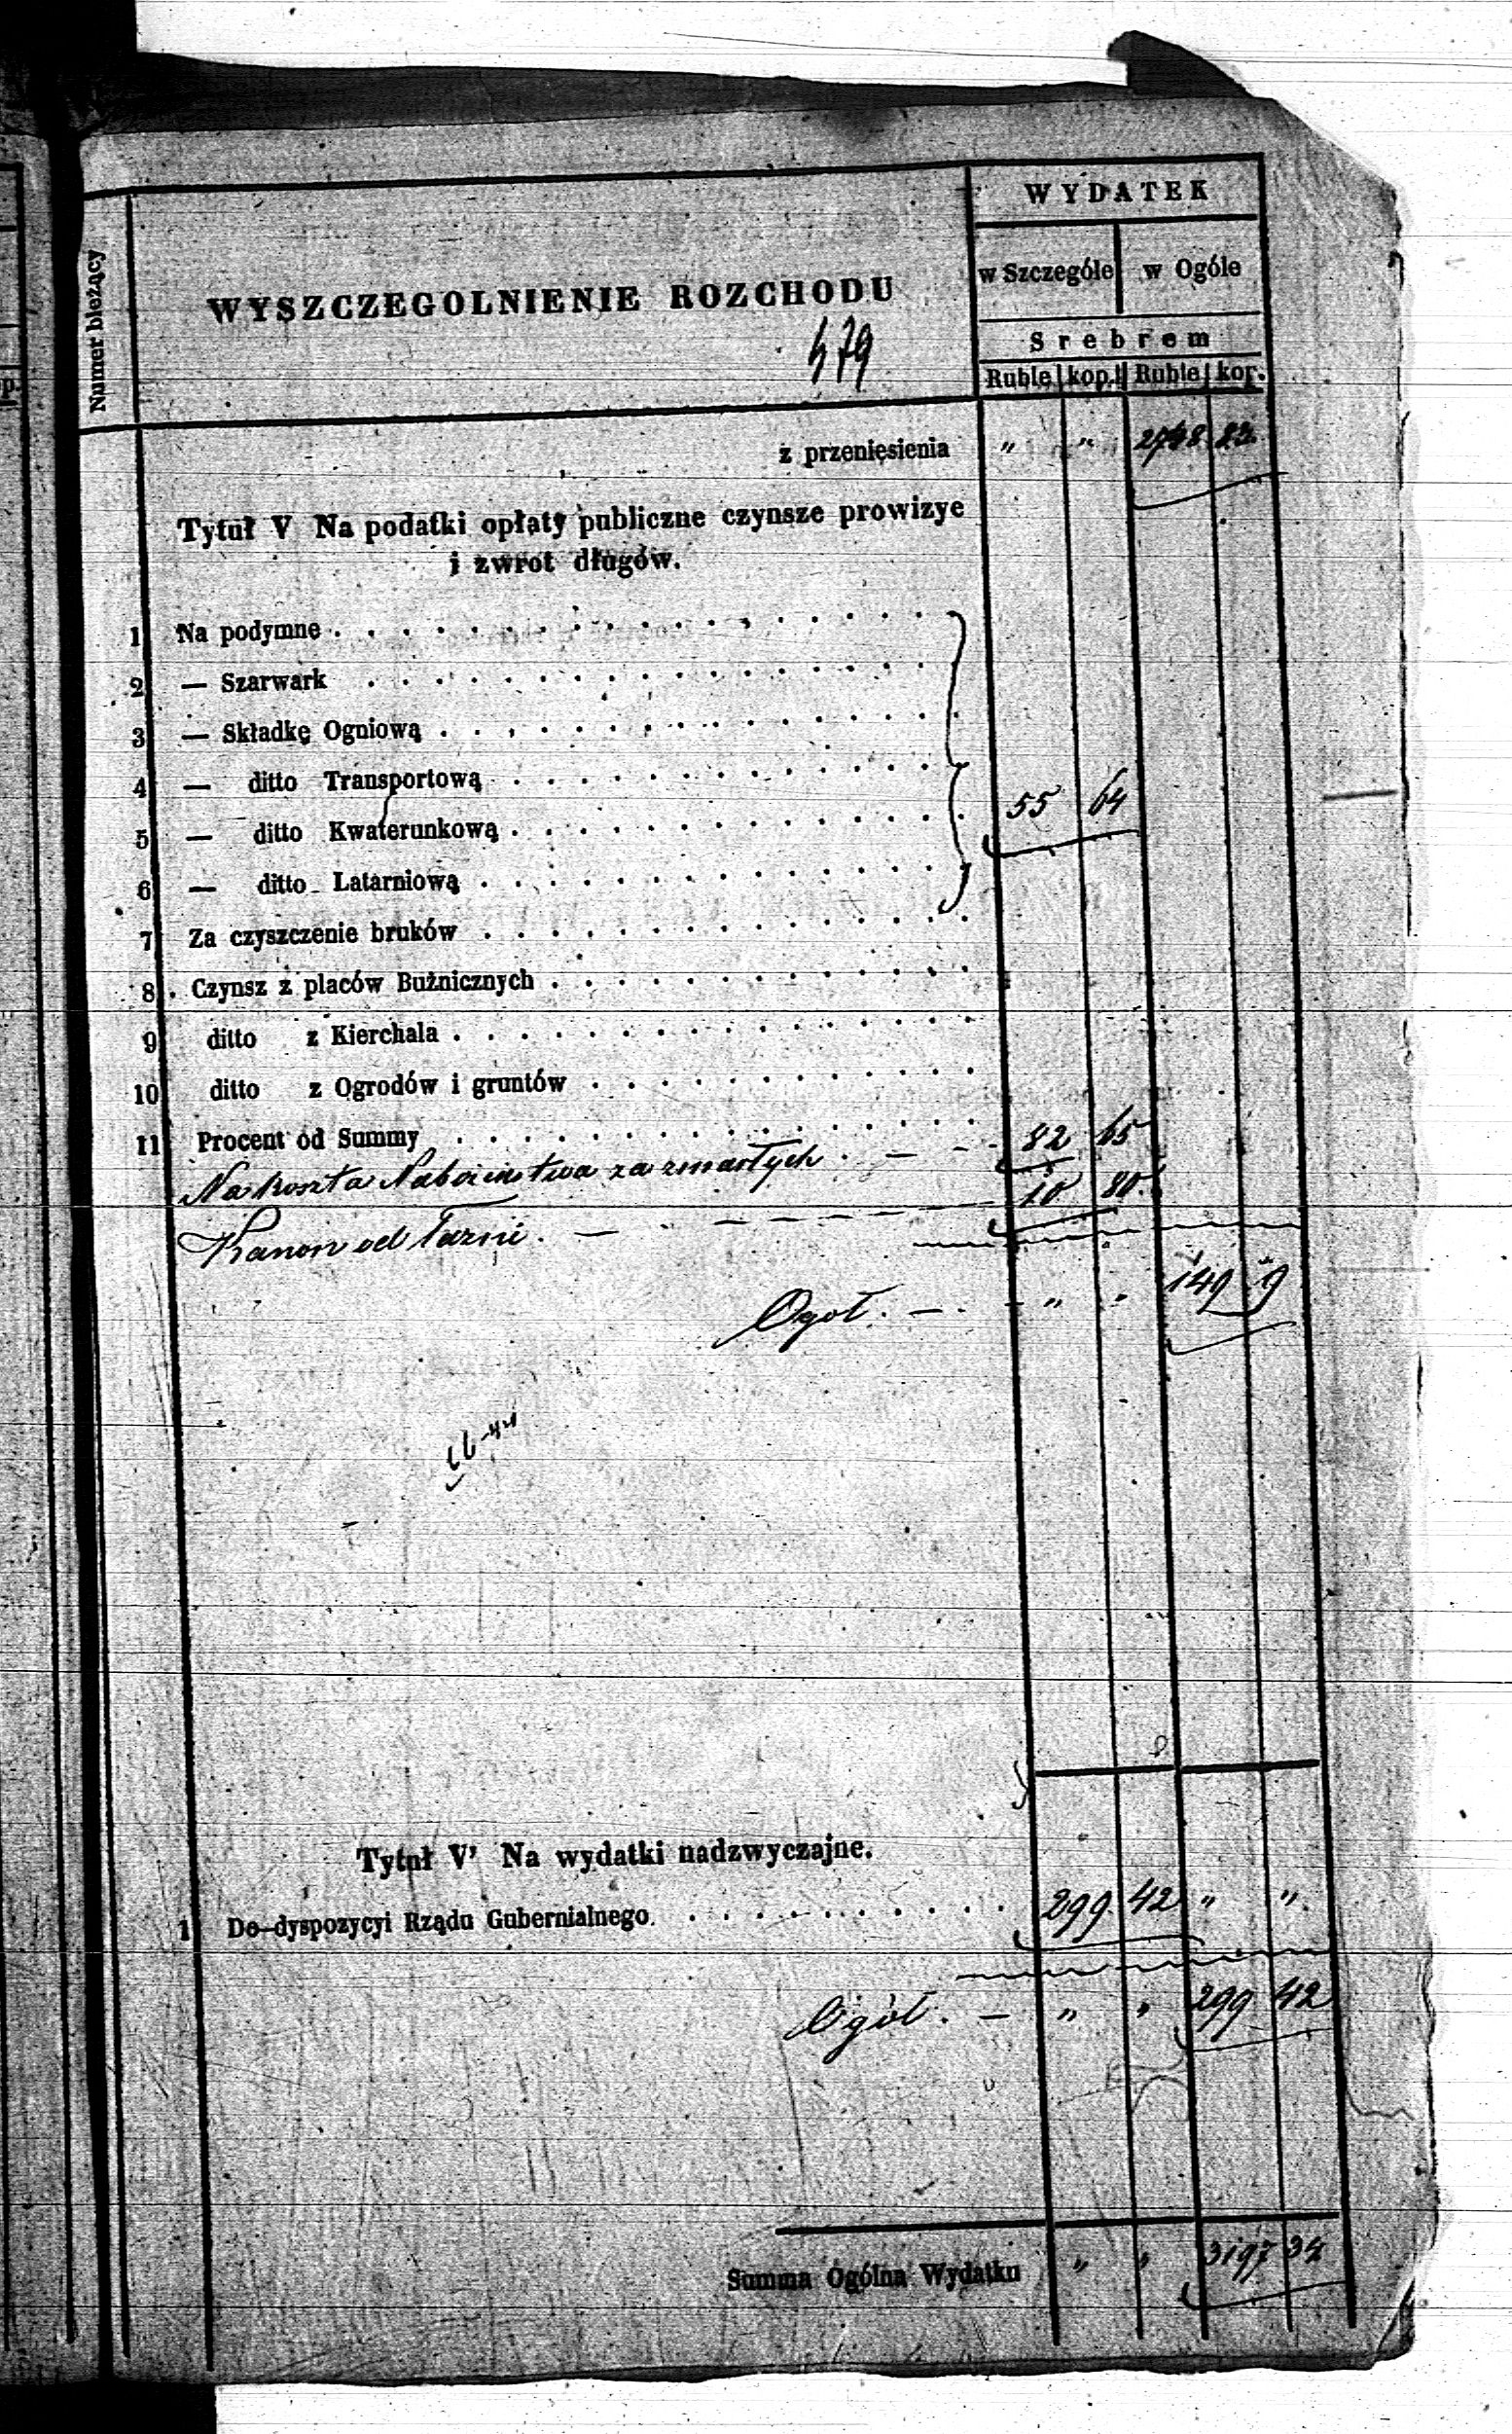 WYDATEK
Numer bieżący
WYSZCZEGOLNIENIE ROZCHODU
w Szczególe w Ogóle
479
Srebrem
Ruble kop. Ruble kop.
z przeniesienia " " 2748 83
Tytuł V Na podatki opłaty publiczne czynsze prowizye
i zwrot długów.
1 Na podymne
2 — Szarwark
3 — Składkę Ogniową
4 — ditto Transportową
5 — ditto Kwaterunkową 55 64
6 — ditto Latarniową
7 Za czyszczenie bruków
8 Czynsz z placów Bużnicznych
9 ditto z Kierchala
10 ditto z Ogrodów i gruntów
11 Procent od Summy
Na koszta Nabożeństwa za zmarłych 82 65
Kanon od Łazni 10 80
Ogół " " 149 9
Tytuł V' Na wydatki nadzwyczajne.
1 Do dyspozycyi Rządu Gubernialnego 299 42 " "
Ogół " " 299 42
Summa Ogólna Wydatku " " 3197 34